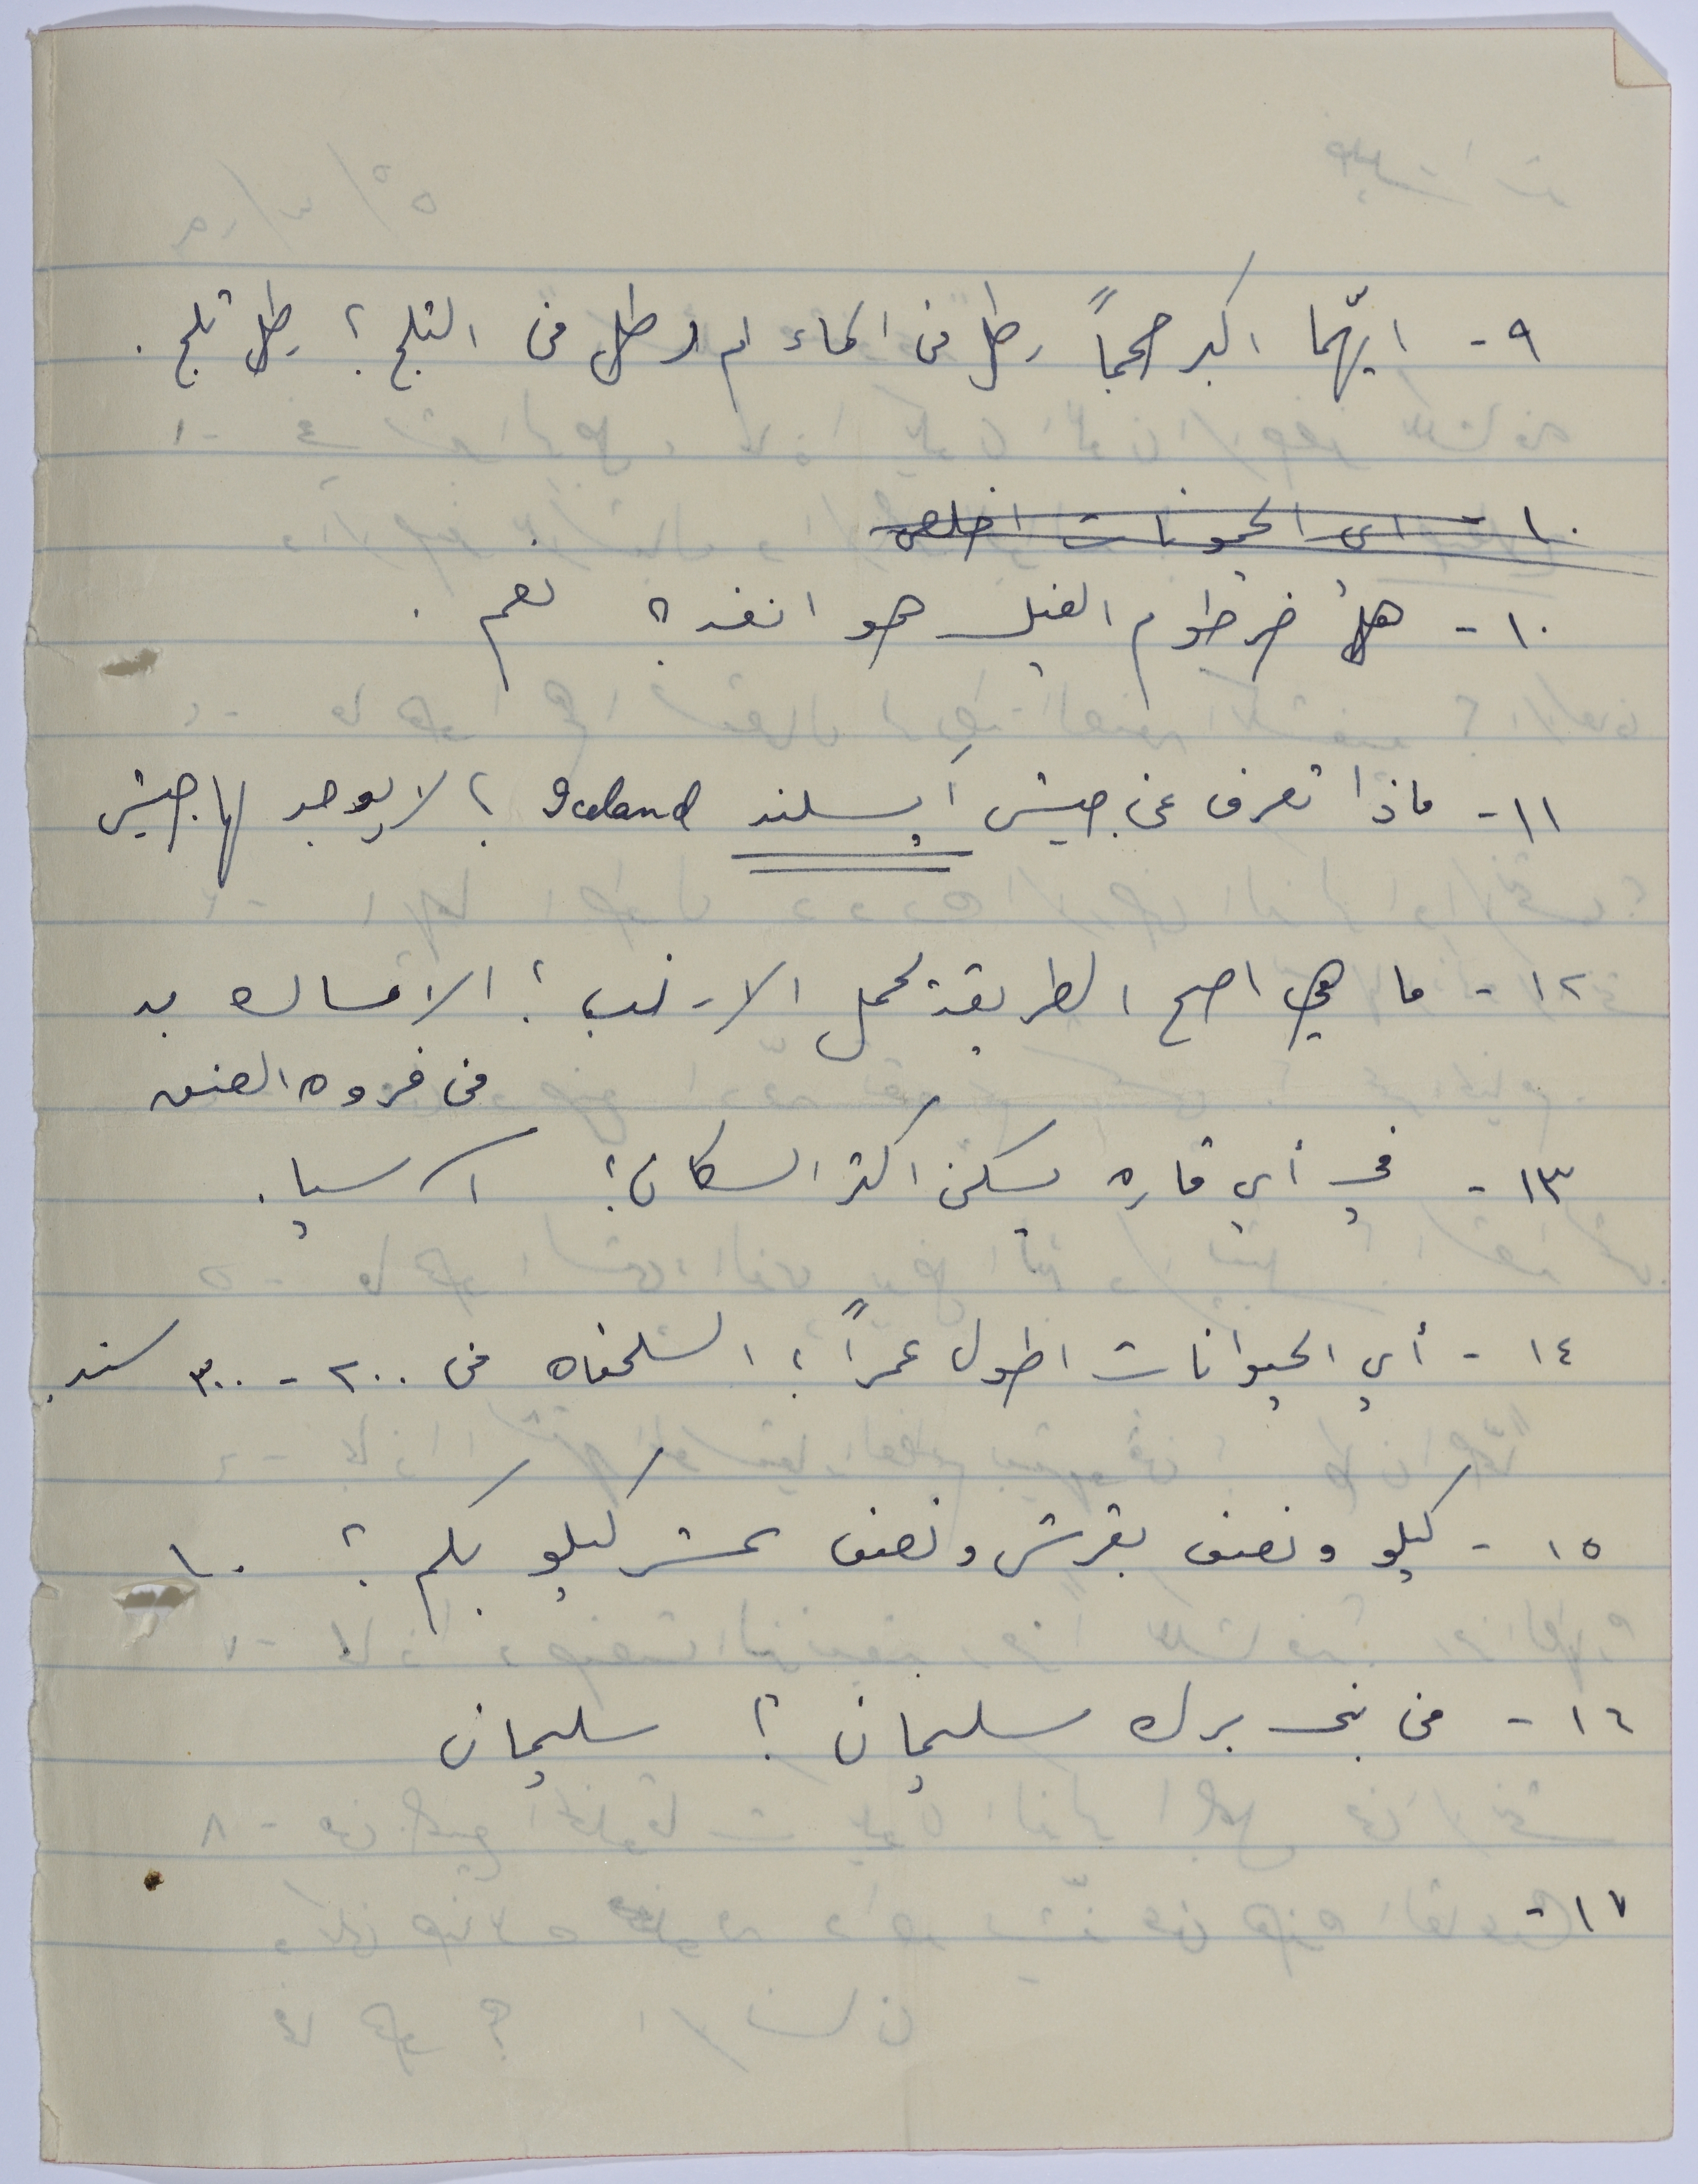 ٩- ايّهما اكبر حجماً رطل من الماء ام رطل من الثلج ؟ رطل ثلج .
١٠- اي الحيوانات اخلص
١٠- هل خرطوم الفيل هو انفه ؟ نعم .
١١- ماذا تعرف عن جيش آيسلند Iceland ؟ لا يوجد لها جيش
١٢- ما هي اصح الطريقة لحمل الارنب ؟ الامساك به
من فروه العنق
١٣- في أي قاره يسكن اكثر السكان ؟ آسيا .
١٤- أي الحيوانات اطول عمراً ؟ السلحفاه من ٢٠٠ - ٣٠٠ سنه .
١٥- كيلو ونصف بقرش ونصف عشر كيلو بكم ؟ ١٠
١٦- من بنى برك سليمان ؟ سليمان
١٧-